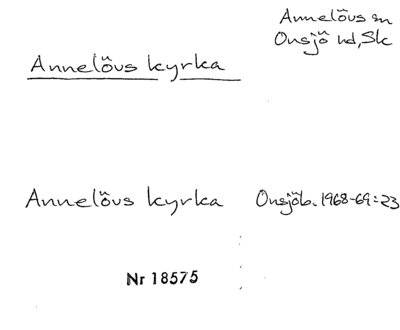 Annelövs sn
Onsjö hd, Sk
Annelövs kyrka
Annelövs kyrka Onsjöb. 1968-69:23
Nr 18575